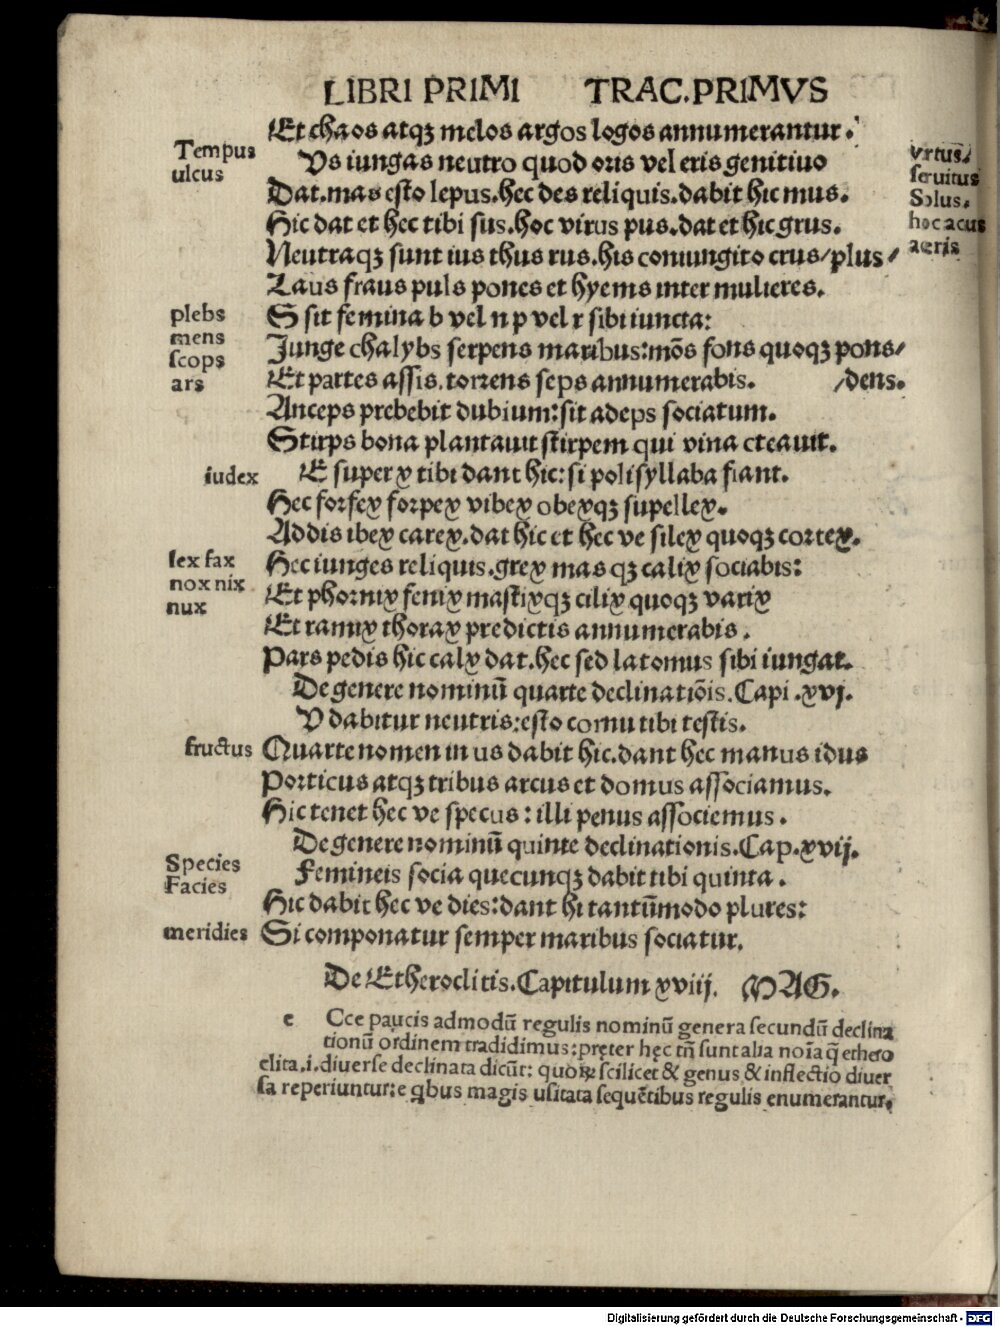 LIBRI PRIMI TRAC.PRIMVS
Et chaos atqꝫ melos argos logos annumerantur.
Tempus
ulcus
Vs iungas neutro quod oris vel eris genitiuo
Dat.mas esto lepus.hec des reliquis.dabit hic mus.
Hic dat et hec tibi sus.hoc virus pus.dat et hic grus.
Neutraqꝫ sunt ius thus rus.his coniungito crus/plus/
virtus/
seruitus
Solus.
hoc acus
aceris
Laus fraus puls pones et hyems inter mulieres.
plebs
mens
scops
ars
S sit femina b vel n p vel r sibi iuncta:
Junge chalybs serpens maribus:mõs fons quoqꝫ pons/
Et partes assis.torrens seps annumerabis. /dens.
Anceps prebebit dubium:sit adeps sociatum.
Stirps bona plantauit stirpem qui vina creauit.
iudex E super x tibi dant hic:si polisyllaba fiant.
Hec forfex forpex vibex obexqꝫ supellex.
Addis ibex carex.dat hic et hec ve silex quoqꝫ cortex.
lex fax
nox nix
nux
Hec iunges reliquis.grex mas qꝫ calix sociabis:
Et phornix fenix mastixqꝫ cilix quoqꝫ varix
Et ramix thorax predictis annumerabis.
Pars pedis hic calx dat.hec sed latomus sibi iungat.
De genere nominũ quarte declinatiõis.Capi.xvj.
V dabitur neutris:esto cornu tibi testis.
fructus Quarte nomen in us dabit hic.dant hec manus idus
Porticus atqꝫ tribus arcus et domus associamus.
Hic tenet hec ve specus: illi penus associemus.
De genere nominũ quinte declinationis.Cap.xvij.
Species
Facies
Femineis socia quecunqꝫ dabit tibi quinta.
Hic dabit hec ve dies:dant hi tantũmodo plures:
meridies Si componatur semper maribus sociatur.
De Etheroclitis.Capitulum xviij. MAG.
e Cce paucis admodũ regulis nominũ genera secundũ declina
tionũ ordinem tradidimus:pręter hęc tñ sunt alia noĩa q̃ ethero
clita.i.diuerse declinata dicũt: quoꝝ scilicet & genus & inflectio diuer
sa reperiuntur:e qbus magis usitata sequẽtibus regulis enumerantur.
Digitalisierung gefördert durch die Deutsche Forschungsgemeinschaft - DFG